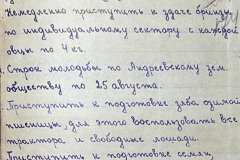 Немедленно приступить к здаче брынзы
по индивидуальному сектору с каждой
овцы по 4 кг.
Строк молодьбы по Андреевскому зем.
обществу по 25 августа.
Приступить к подготовке зяба озимой
пшеницы, для этого воспользовать все
трактора и свободные лошади.
Приступить к подготовке семян